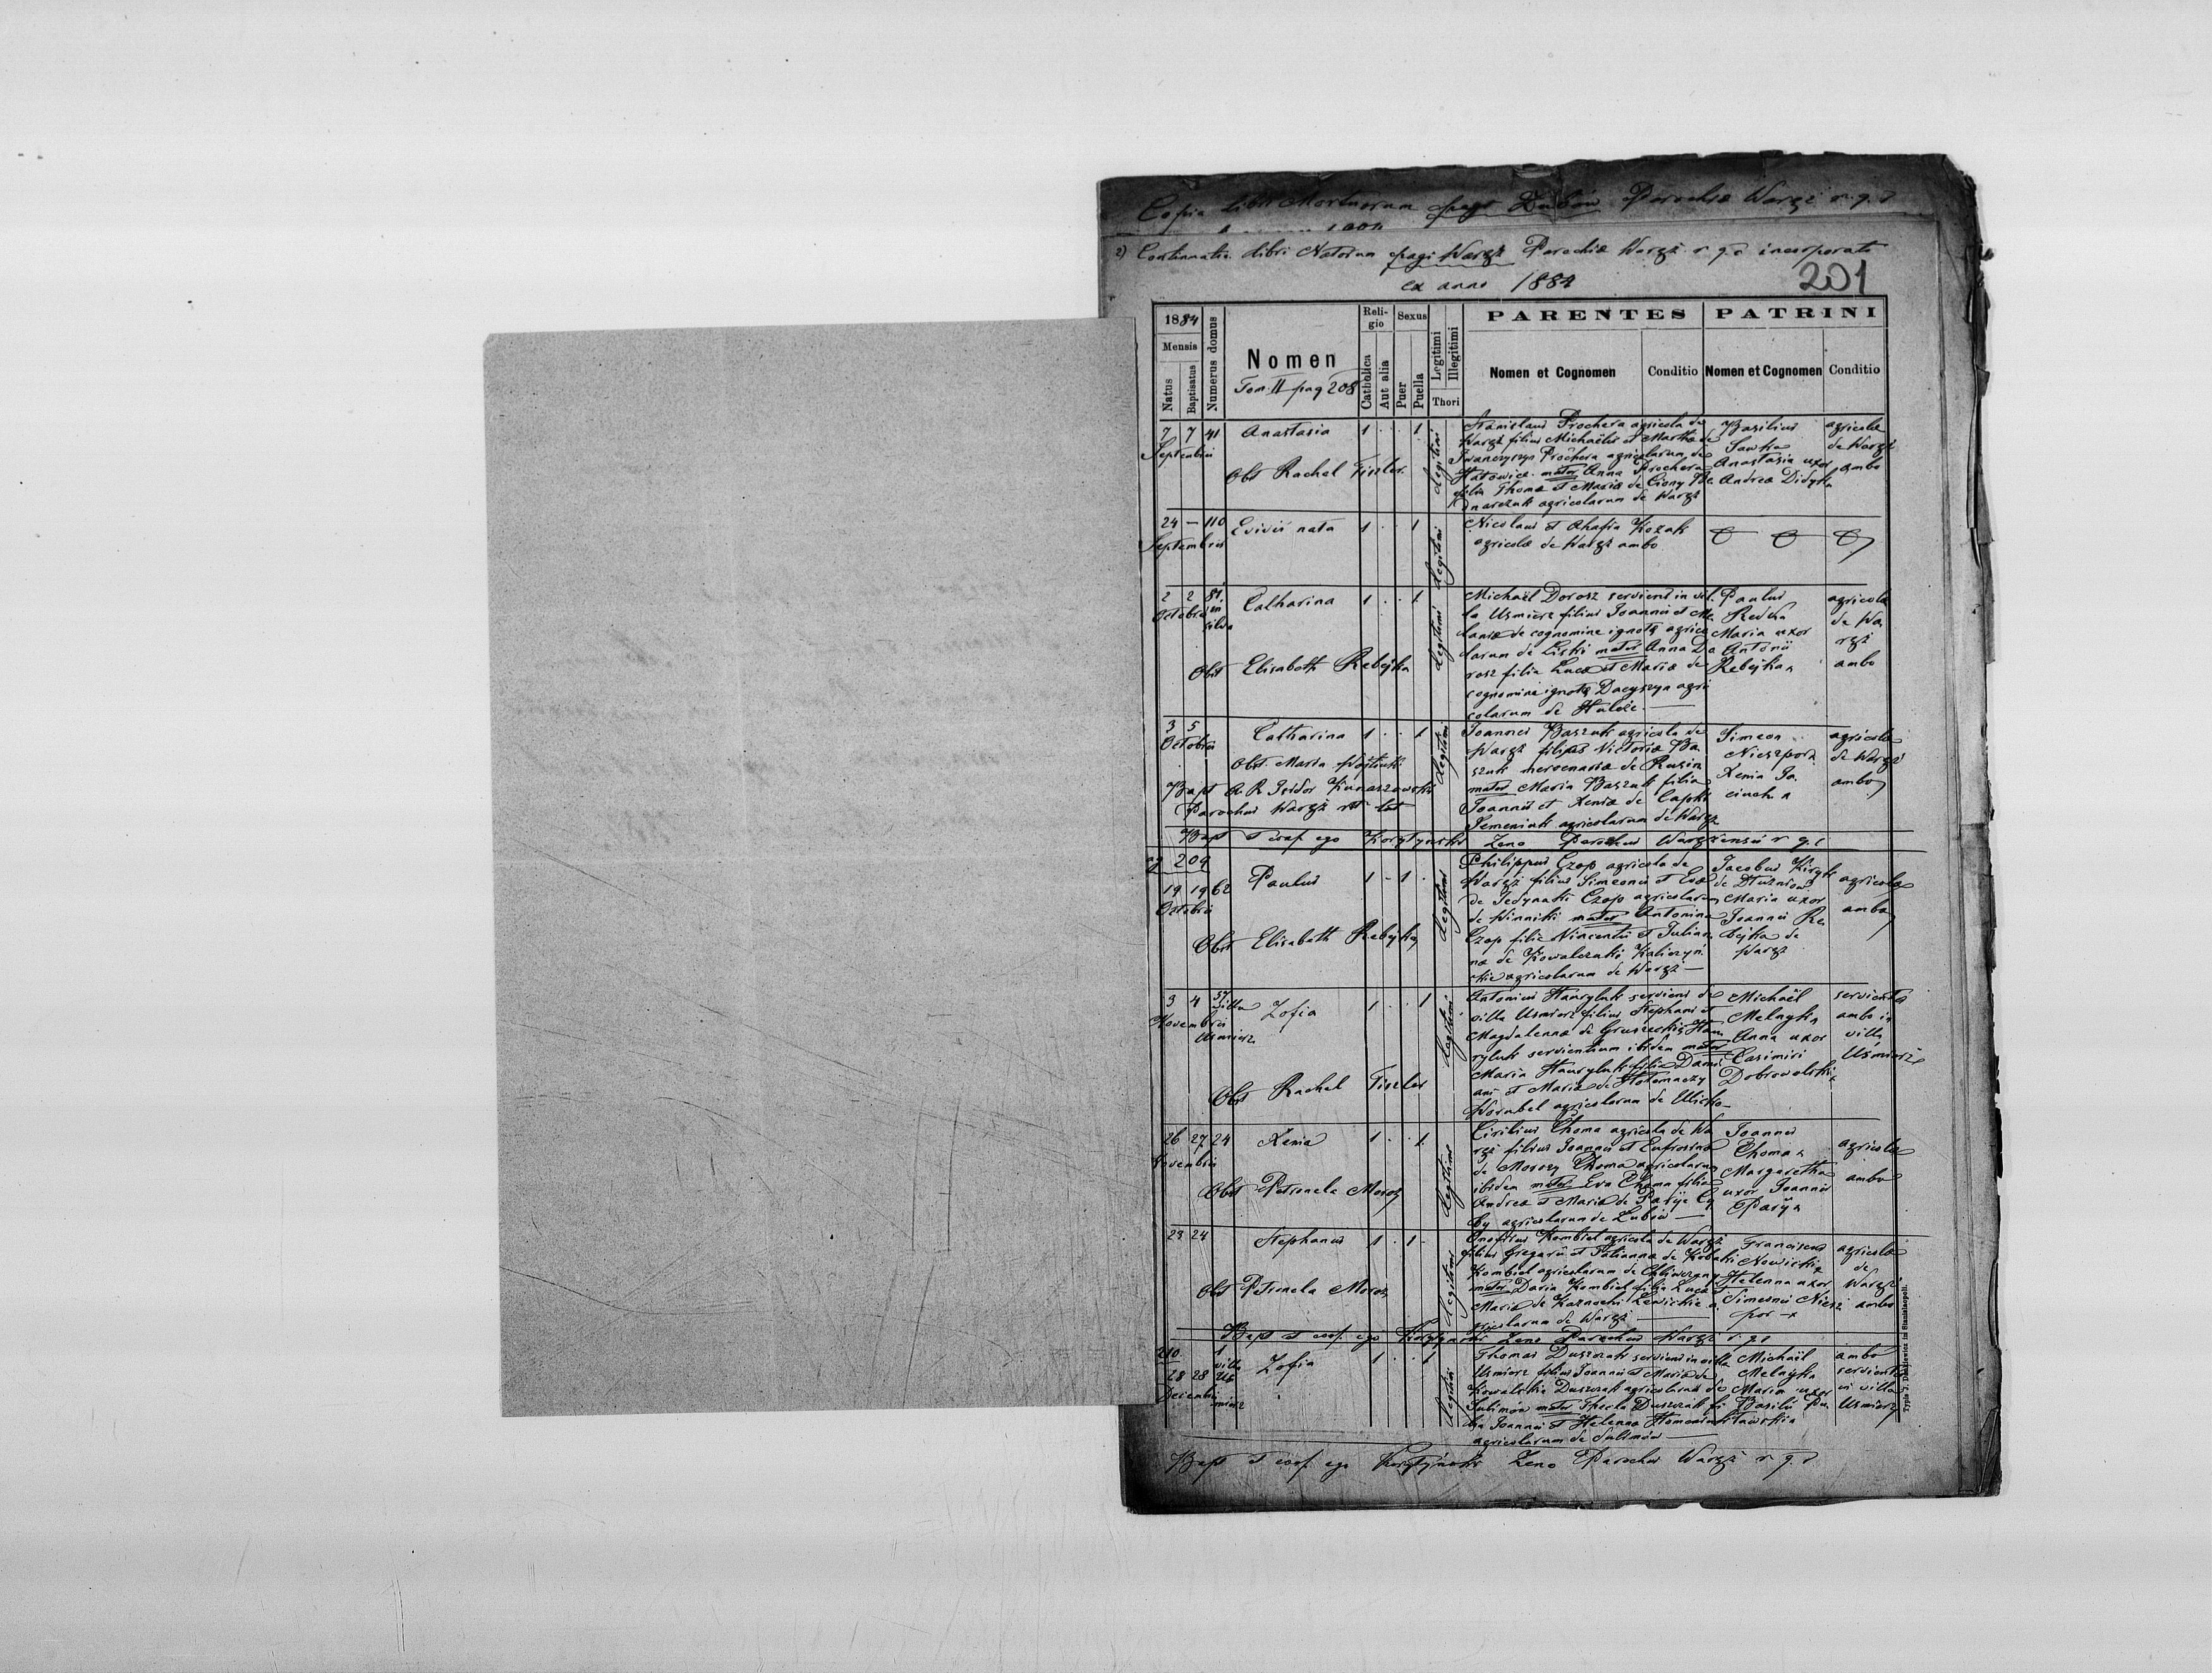 Copia libri Mortuorum pagi Zubów Parochiæ Waręż r. g. c
2) Continuatio libri Natorum pagi Waręż Parochiæ Waręż r. g. c incorporati
ex anno 1884
201
1884
Mensis
Natus
Baptisatus
Numerus domus
Nomen
Tom II pag 208
Religio
Catholica
Aut alia
Sexus
Puer
Puella
Legitimi
Illegitimi
Thori
PARENTES
Nomen et Cognomen
Conditio
PATRINI
Nomen et Cognomen
Conditio
7 7 41
Septembris
Anastasia
1 1
Obst Rachel Fiszler
Legitimi
Stanislaus Prochera agricola de
Waręż filius Michaëlis et Martha de
Iwanczyszyn Prochera agricolarum de
mater Anna Prochera
filia Thomæ et Mariæ de
agricolarum de Waręż
Basilius
Sawka
Anastasia uxor
Andreæ Didyk
agricolæ
de Waręż
ambo
24 — 110
Septembris
E vivis nata
1 1
Legitimi
Nicolaus et Ahafia Kozak
agricolæ de Waręż ambo
2 2 81
Octobris in
silva
Catharina
1 1
Obst Elisabeth Rebejka
Legitimi
Michaël Dorosz serviens in vil
la Uśmierz filius Joannis et Me
laniæ de cognomine ignota agrico
larum de Liski mater Anna Do
rosz filia Lucæ et Mariæ de
cognomine ignota Dacyszyn agri
colarum de Hulcze
Paulus
Redka
Maria uxor
Antonii
Rebejka
agricolæ
de Wa
ręż
ambo
3 5
Octobris
Catharina
1 1
Obst. Maria
Bapt A. R. Isidor Kunaszowski
Parochus Waręż rit lat
Legitimi
Joannes Baszuk agricola de
Waręż filius Victoriæ Ba
szuk mercenariæ de Rusin
mater Maria Baszuk filia
Joannis et Xeniæ de Capki
Semeniuk agricolarum de Waręż
Simeon
Nieszpor
Xenia
agricolæ
de Waręż
ambo
Bapt et conf. ego Korytyński Zeno Parochus Warężensis r. g. c
pag 209
19 19 62
Octobris
Paulus
1 1
Obst Elisabeth Rebejka
Legitimi
Philippus Czop agricola de
Waręż filius Simeonis et Evæ
de Jedynaki Czop agricolarum
de Winniki mater Antonina
Czop filia Vincentii et Julian
næ de Kowalczuki Kaliczyń
skie agricolarum de Waręż
Jacobus Kiryk
de Dłużniów
Maria uxor
Joannis Re
bejka de
Waręż
agricolæ
ambo
3 4 57
villa
Novembris
Uśmierz
Zofia
1 1
Obst Rachel Fiszler
Legitimi
Antonius Hawryluk serviens de
villa Uśmierz filius Stephani et
Magdalenæ de Gruszecki Haw
ryluk servientium ibidem mater
Maria Hawryluk filia Dami
ani et Mariæ de Hołomaczy
Worobel agricolarum de
Michaël
Melnyk
Anna uxor
Casimiri
Dobrowolski
servientes
ambo in
villa
Uśmierz
26 27 24
Novembris
Xenia
1 1
Obst Petronela Moroz
Legitimi
Cirilius Choma agricola de Wa
ręż filius Joannis et Eufrosinæ
de Morozy Choma agricolarum
ibidem mater Eva Choma filia
Andreæ et Mariæ de Paryje Cy
by agricolarum de Lubów
Joannes
Choma
Margaretha
uxor Joannis
Paryj
agricolæ
ambo
23 24
Stephanus
1 1
Obst Petronela Moroz
Legitimi
Onofrius Kombel agricola de Waręż
filius Gregorii et Tatiannæ de
Kombel agricolarum de Chliwczany
mater Daria Kombel filia Lucæ et
Mariæ de Lewickie a
gricolarum de Waręż
Franciscus
Nowicki
Helenna uxor
Simeonis Niesz
por
agricolæ
de
Waręż
ambo
Bapt et conf. ego Korytyński Zeno Parochus Waręż r. g. c
210
28 28 1
villa
Uś
mierz
Decembris
Zofia
1 1
Legitimi
Thomas Duszczak serviens in villa
Uśmierz filius Joannis et Mariæ de
Kowalski Duszczak agricolarum de
Sulimów mater Thecla Duszczak fi
lia Joannis et Helennæ
agricolarum de Sulimów
Michaël
Melnyk
Maria uxor
Basilii
ambo
servientes
in villa
Uśmierz
Bapt et conf. ego Korytyński Zeno Parochus Waręż r. g. c
Typis J. Dankiewicz in Stanislaopoli.